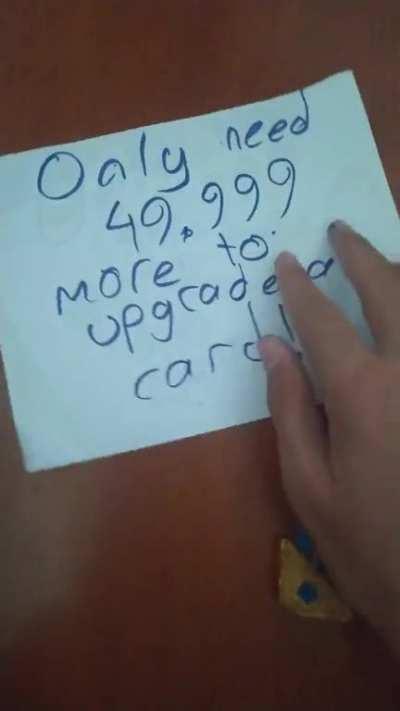 Only need
49.999
more to
upgrade a
card!